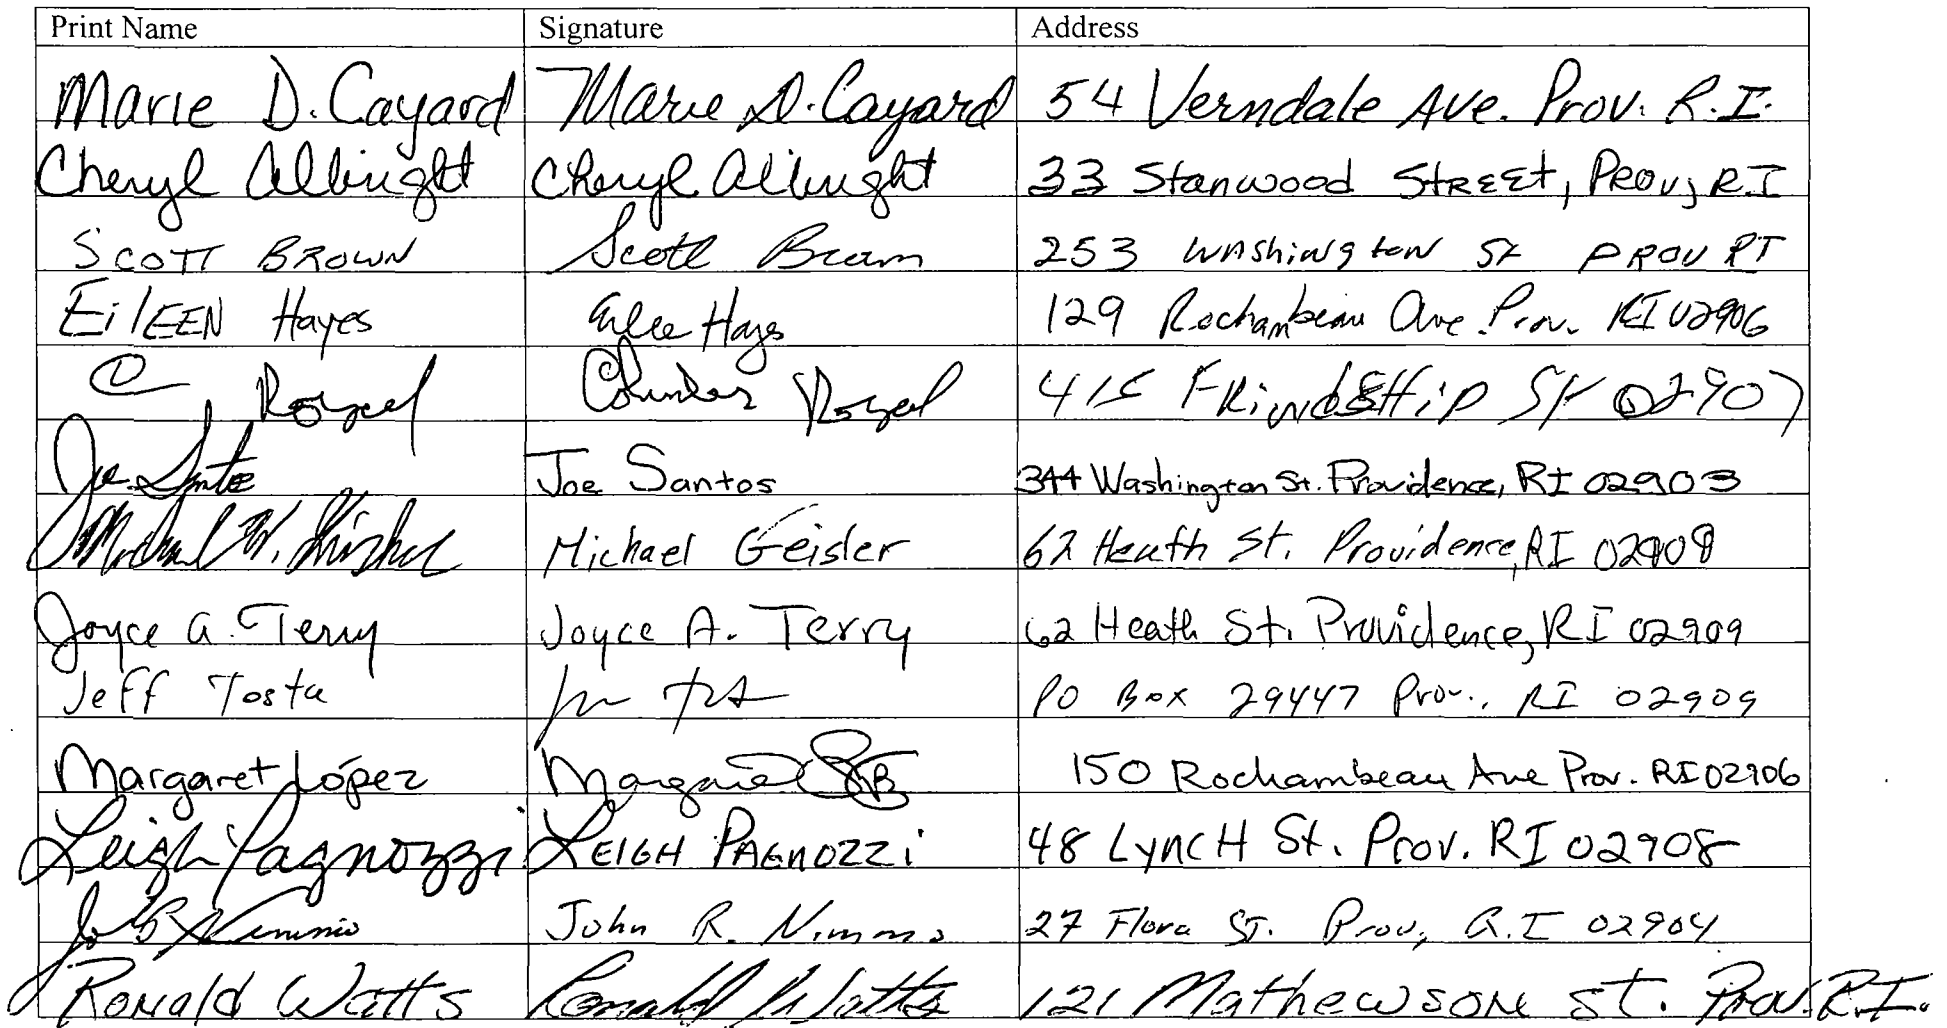 Print Name Signature Address
Marie D. Cayard Marie D. Cayard 54 Verndale Ave. Prov. R.I.
Cheryl Albright Cheryl Albright 33 Stanwood Street, Prov, R.I
SCOTT BROWN Scott Brown 253 Washington St PROV RI
EilEEN Hayes Eilee Hayes 129 Rochambeau Ave. Prov. RI 02906
C Rozel 415 FRiendSHip St 02907
Joe Santos Joe Santos 344 Washington St. Providence, RI 02903
Michael Geisler 62 Heath St. Providence, RI 02909
Joyce A. Terry Joyce A. Terry 62 Heath St. Providence, RI 02909
Jeff Tosta PO Box 29447 Prov., RI 02909
Margaret López Margaret 150 Rochambeau Ave Prov. RI 02906
Leigh Pagnozzi LEIGH PAGNOZZi 48 LyncH St. Prov. RI 02908
John R. Nimmo 27 Flora ST. Prov, R.I 02904
Ronald Watts Ronald Watts 121 Mathewson St. Prov. R.I.